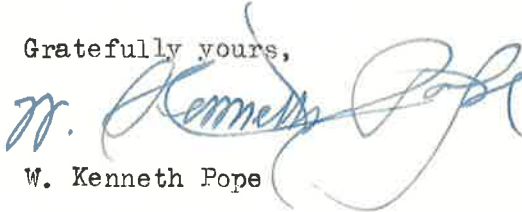 Gratefully yours,
W. Kenneth Pope
W. Kenneth Pope